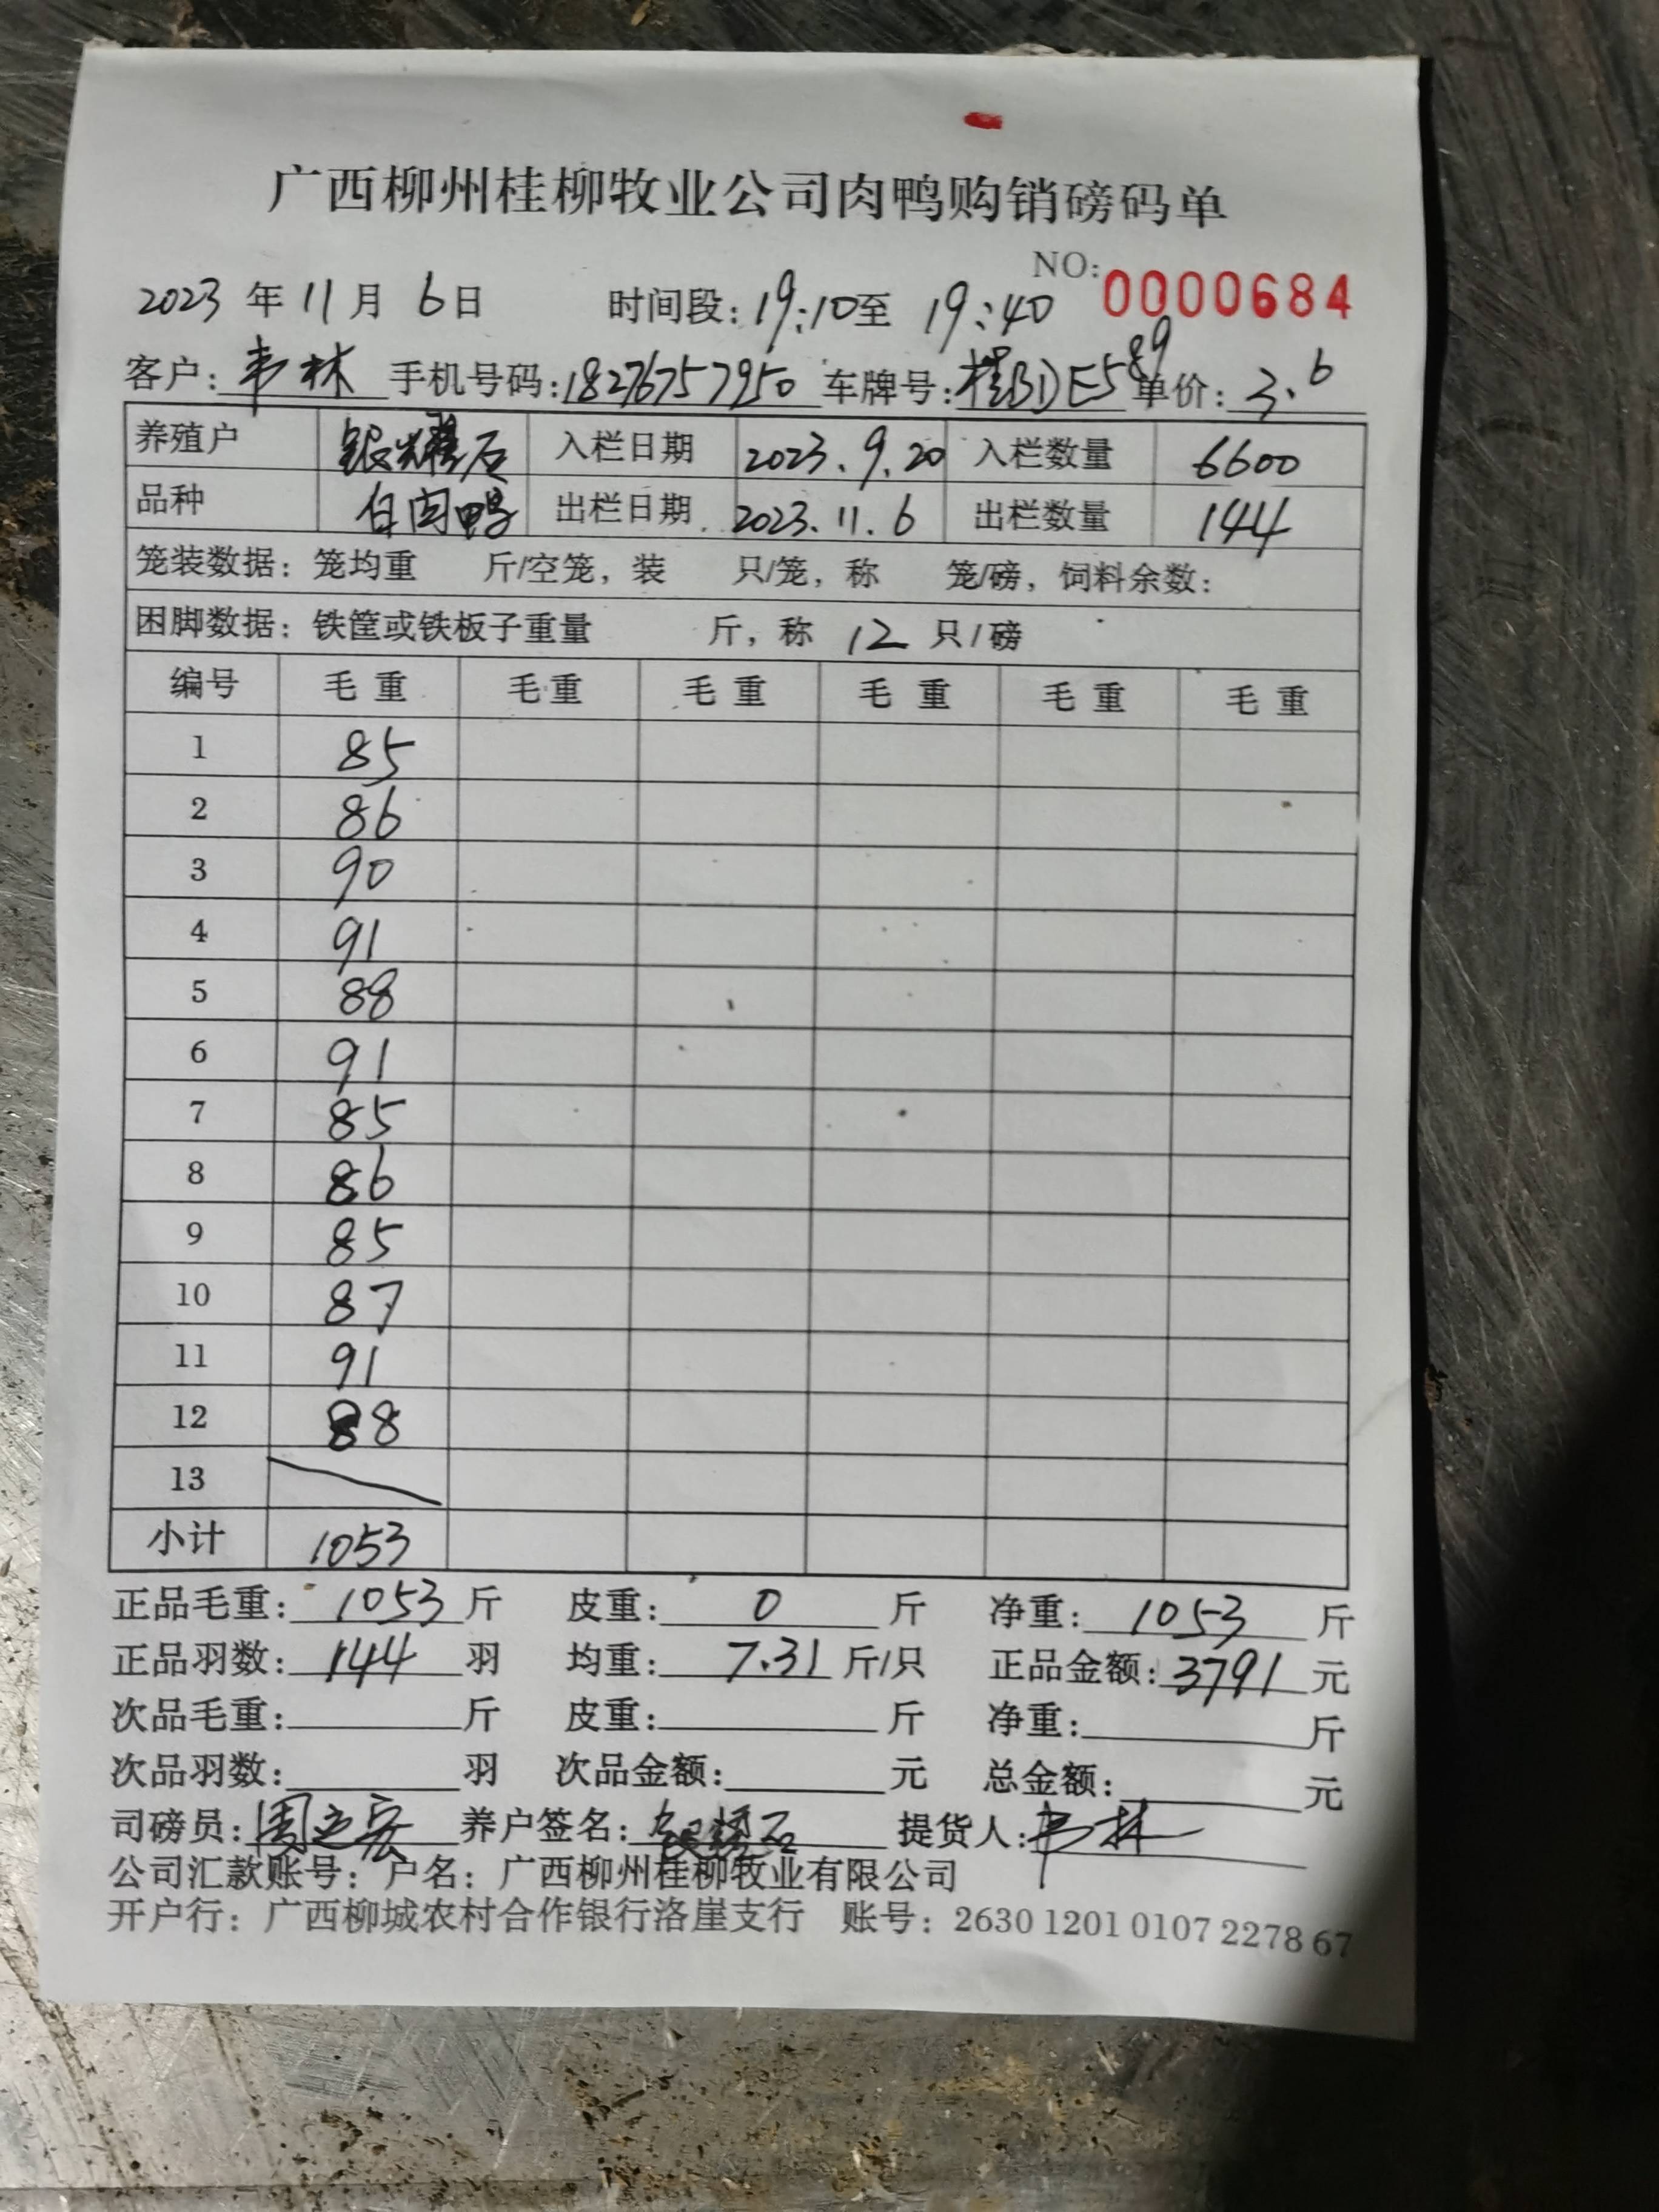 广西柳州桂柳牧业公司肉鸭购销磅码单
NO: 0000684
2023 年 11 月 6 日 时间段: 19:10 至 19:40
客户: 韦林 手机号码: 18276757950 车牌号: 桂BDE589 单价: 3.6
养殖户 银耀石 入栏日期 2023.9.20 入栏数量 6600
品种 白肉鸭 出栏日期 2023.11.6 出栏数量 144
笼装数据: 笼均重 斤/空笼, 装 只/笼, 称 笼/磅, 饲料余数:
困脚数据: 铁筐或铁板子重量 斤, 称 12 只/磅
编号 毛重 毛重 毛重 毛重 毛重 毛重
1 85
2 86
3 90
4 91
5 88
6 91
7 85
8 86
9 85
10 87
11 91
12 88
13
小计 1053
正品毛重: 1053 斤 皮重: 0 斤 净重: 1053 斤
正品羽数: 144 羽 均重: 7.31 斤/只 正品金额: 3791 元
次品毛重: 斤 皮重: 斤 净重: 斤
次品羽数: 羽 次品金额: 元 总金额: 元
司磅员: 周立宏 养户签名: 银耀石 提货人: 韦林
公司汇款账号: 户名: 广西柳州桂柳牧业有限公司
开户行: 广西柳城农村合作银行洛崖支行 账号: 2630 1201 0107 2278 67